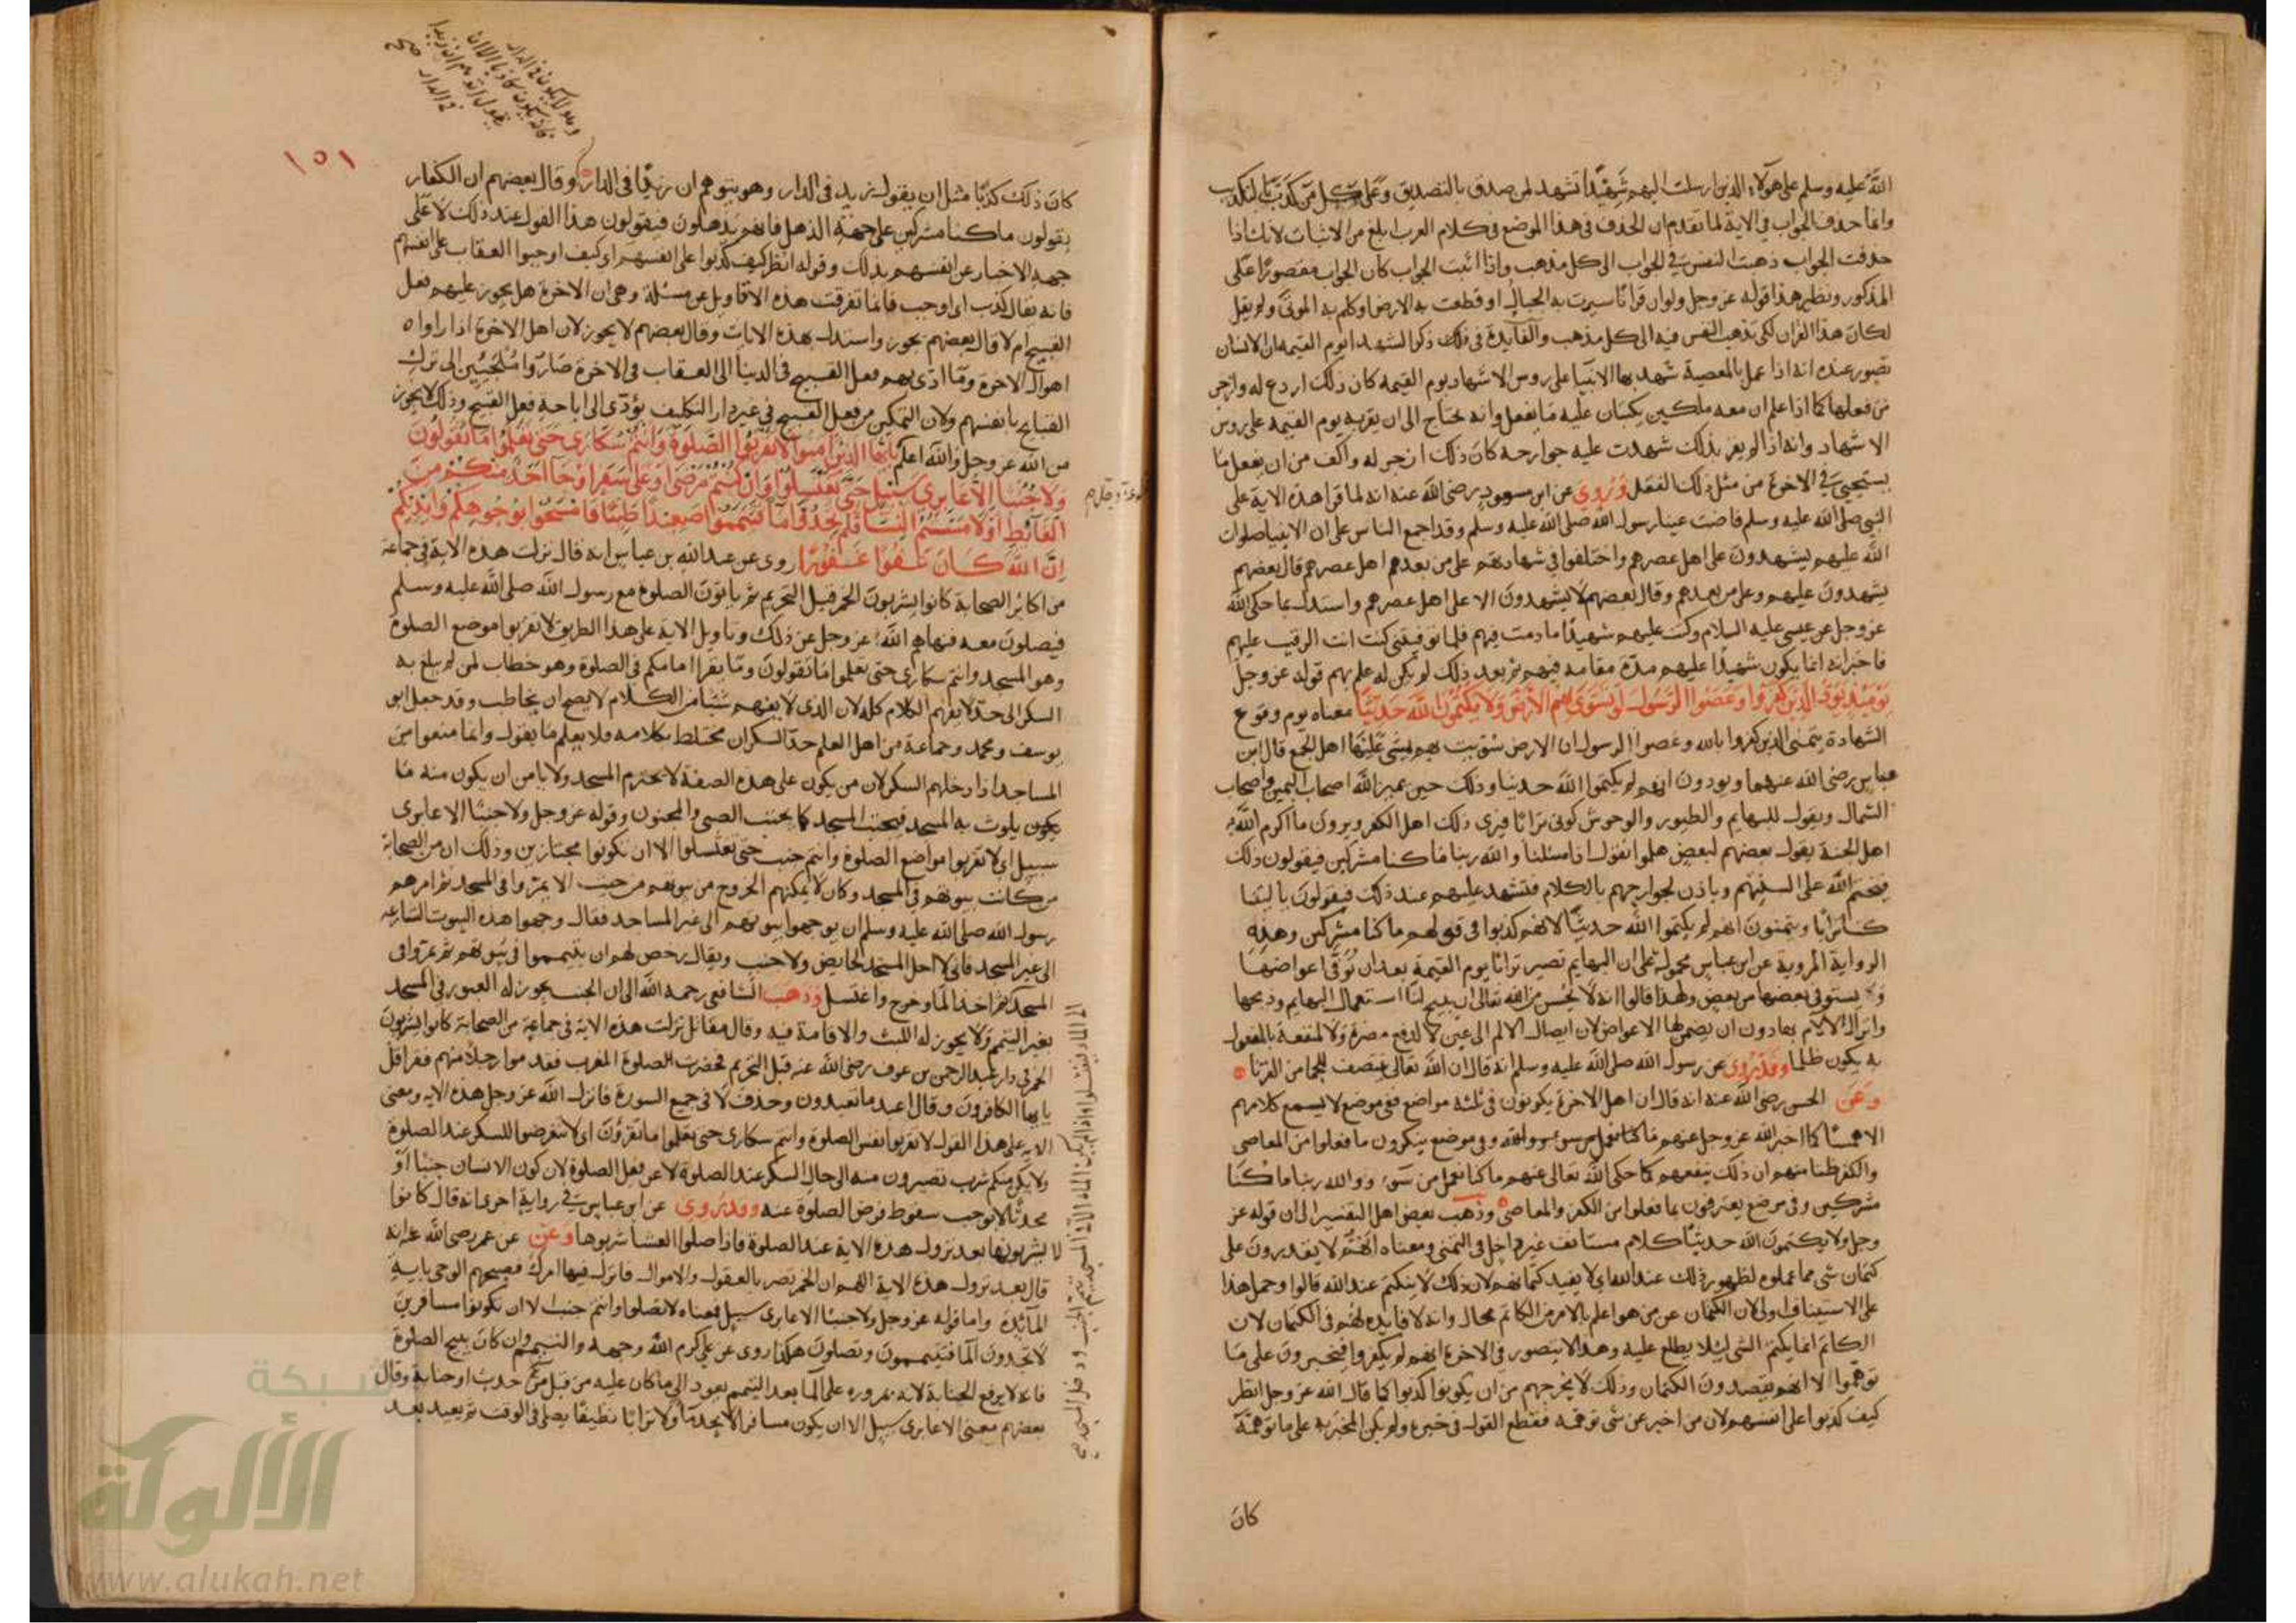 الله عليه وسلم على هولاء الذين ارسلت اليهم شهيدا تشهد لمن صدق بالتصديق وعلى كل من كذب بالتكذيب
وانما حذف الجواب في الاية لما تقدم ان الحذف في هذا الموضع في كلام العرب ابلغ من الاثبات لانك اذا
حذفت الجواب ذهبت النفس في الجواب الى كل مذهب واذا اثبت الجواب كان الجواب مقصورا على
المذكور ونظير هذا قوله عز وجل ولو ان قرانا سيرت به الجبال او قطعت به الارض او كلم به الموتى ولم يقل
لكان هذا القران لكى تذهب النفس فيه الى كل مذهب والفايدة في ذلك ذكر الشهدا يوم القيمة ان الانسان
تصور عنده انه اذا عمل بالمعصية شهد بها الانبيا على روس الاشهاد يوم القيمة كان ذلك اردع له وازجر
من فعلها كما اذا علم ان معه ملكين يكتبان عليه ما يفعل وانه يحتاج الى ان يقر به يوم القيمة على روس
الاشهاد وانه اذا لم يقر بذلك شهدت عليه جوارحه كان ذلك ازجر له واكف من ان يفعل ما
يستحيى في الاخرة من مثل ذلك الفعل وروى عن ابن مسعود رضى الله عنه انه لما قرا هذه الاية على
النبي صلى الله عليه وسلم فاضت عينا رسول الله صلى الله عليه وسلم وقد اجمع الناس على ان الانبيا صلوات
الله عليهم يشهدون على اهل عصرهم واختلفوا في شهادتهم على من بعدهم اهل عصرهم قال بعضهم
يشهدون عليهم وعلى من بعدهم وقال بعضهم لا يشهدون الا على اهل عصرهم واستدل بما حكى الله
عز وجل عن عيسى عليه السلام وكنت عليهم شهيدا ما دمت فيهم فلما توفيتنى كنت انت الرقيب عليهم
فاخبر انه انما يكون شهيدا عليهم مدة مقامه فيهم ثم بعد ذلك لم يكن له علم بهم قوله عز وجل
يوميذ يود الذين كفروا وعصوا الرسول لو تسوى بهم الارض ولا يكتمون الله حديثا معناه يوم وقوع
الشهادة يتمنى الذين كفروا بالله وعصوا الرسول ان الارض سويت بهم يمشى عليها اهل الجمع قال ابن
عباس رضى الله عنهما ويودون انهم لم يكتموا الله حديثا وذلك حين يميز الله اصحاب اليمين واصحاب
الشمال ويقول للبهايم والطيور والوحوش كونى ترابا فيرى ذلك اهل الكفر ويرون ما اكرم الله به
اهل الجنة يقول بعضهم لبعض هلموا نقول اذا سئلنا والله ربنا ما كنا مشركين فيقولون ذلك
فيختم الله على السنتهم وياذن لجوارحهم بالكلام فتشهد عليهم عند ذلك فيقولون يا ليتنا
كنا ترابا ويتمنون انهم لم يكتموا الله حديثا لانهم كذبوا في قولهم ما كنا مشركين وهذه
الرواية المروية عن ابن عباس محمولة على ان البهايم تصير ترابا يوم القيمة بعد ان توفى اعواضها
ويستوفى بعضها من بعض ولهذا قالوا انه لا يحسن من الله تعالى ان يبيح لنا استعمال البهايم وذبحها
وانزال الالام بها دون ان يضمن لها الاعواض لان ايصال الالم الى عين لا لدفع مضرة ولا لمنفعة بالمفعول
به يكون ظلما وقد روى عن رسول الله صلى الله عليه وسلم انه قال ان الله تعالى ينتصف للجما من القرنا
وعن الحسن رضى الله عنه انه قال ان اهل الاخرة يكونون في ثلثه مواضع ففى موضع لا يسمع كلامهم
الا همسا كما اخبر الله عز وجل عنهم ما كنا نعمل من سوء وفى موضع ينكرون ما فعلوا من المعاصى
والكفر ظنا منهم ان ذلك ينفعهم كما حكى الله تعالى عنهم ما كنا نعمل من سوء ووالله ربنا ما كنا
مشركين وفى موضع يعترفون بما فعلوا من الكفر والمعاصى وذهب بعض اهل التفسير الى ان قوله عز
وجل ولا يكتمون الله حديثا كلام مستانف غير داخل في التمنى ومعناه انهم لا يقدرون على
كتمان شى مما عملوه لظهور ذلك عند الله اى لا يفيد كتمانهم لان ذلك لا ينكتم عند الله قالوا وحمل هذا
على الاستيناف اولى لان الكتمان عن من هو اعلم بالامر من الكاتم محال وانه لا فايده لهم في الكتمان لان
الكاتم انما يكتم الشى ليلا يطلع عليه وهذا لا يتصور في الاخرة انهم لم يكفروا فيخبرون على ما
توهموا لا انهم يقصدون الكتمان وذلك لا يخرجهم من ان يكونوا كذبوا كما قال الله عز وجل انظر
كيف كذبوا على انفسهم لان من اخبر عن شى توهمه فقطع القول في خبره ولم يكن المخبر به على ما توهمه
كان
وهو لا يكون في الدار
فانه يكون كاذبا الا ان
يقول اتوهم ان زيدا
في الدار صح
١٥١
كان ذلك كذبا مثل ان يقول زيد فى الدار وهو يتوهم ان زيدا فى الدار وقال بعضهم ان الكفار
يقولون ما كنا مشركين على جهة الذهل فانهم يذهلون فيقولون هذا القول عند ذلك لا على
جهة الاخبار عن انفسهم بذلك وقوله انظر كيف كذبوا على انفسهم اى كيف اوجبوا العقاب على انفسهم
فانه يقال كذب اى اوجب فانما تفرقت هذه الاقاويل عن مسئلة وهى ان الاخرة هل يجوز عليهم فعل
القبيح ام لا قال بعضهم يجوز واستدل بهذه الايات وقال بعضهم لا يجوز لان اهل الاخرة اذا راوا
اهوال الاخرة وما ادى بهم فعل القبيح فى الدنيا الى العقاب فى الاخرة صاروا ملجئين الى ترك
القبايح بانفسهم ولان التمكين من فعل القبيح في غير دار التكليف يؤدى الى اباحة فعل القبيح وذلك لا يجوز
من الله عز وجل والله اعلم يايها الذين امنوا لا تقربوا الصلوة وانتم سكارى حتى تعلموا ما تقولون
ولا جنبا الا عابرى سبيل حتى تغتسلوا وان كنتم مرضى او على سفر او جا احد منكم من
الغائط او لامستم النسا فلم تجدوا ما فتيمموا صعيدا طيبا فامسحوا بوجوهكم وايديكم
ان الله كان عفوا غفورا روى عن عبد الله بن عباس انه قال نزلت هذه الاية في جماعة
من اكابر الصحابة كانوا يشربون الخمر قبل التحريم ثم ياتون الصلوة مع رسول الله صلى الله عليه وسلم
فيصلون معه فنهاهم الله عز وجل عن ذلك وتاويل الاية على هذا الطريق لا تقربوا موضع الصلوة
وهو المسجد وانتم سكارى حتى تعلموا ما تقولون وما يقرا امامكم فى الصلوة وهو خطاب لمن لم يبلغ به
السكر الى حد لا يفهم الكلام كله لان الذى لا يفهم شيئا من الكلام لا يصح ان يخاطب وقد جعل ابو
يوسف ومحمد وجماعة من اهل العلم حد السكران مختلط كلامه فلا يعلم ما يقول وانما منعوا من
المساجد اذا دخلهم السكر لان من يكون على هذه الصفة لا يحترم المسجد ولا يامن ان يكون منه ما
يكون يلوث به المسجد فيجنب المسجد كما يجنب الصبى والمجنون وقوله عز وجل ولا جنبا الا عابرى
سبيل اى لا تقربوا مواضع الصلوة وانتم جنب حتى تغتسلوا الا ان تكونوا مجتازين وذلك ان من الصحابة
من كانت بيوتهم في المسجد وكان لا يمكنهم الخروج من بيوتهم من حيث الا يمروا في المسجد ثم امرهم
رسول الله صلى الله عليه وسلم ان يوجهوا بيوتهم الى غير المساجد فقال وجهوا هذه البيوت الشارعه
الى غير المسجد فانى لا احل المسجد لحايض ولا جنب ويقال رخص لهم ان يتيمموا في بيوتهم ثم يمروا فى
المسجد ثم اخذ الما وخرج واغتسل وذهب الشافعى رحمه الله الى ان الجنب يجوز له العبور فى المسجد
بغير التيمم ولا يجوز له اللبث والاقامة فيه وقال مقاتل نزلت هذه الاية في جماعة من الصحابة كانوا يشربون
الخمر فى دار عبد الرحمن بن عوف رضى الله عنه قبل التحريم فحضرت الصلوة المغرب فقدموا رجلا منهم فقرا قل
يايها الكافرون وقال اعبد ما تعبدون وحذف لا فى جميع السورة فانزل الله عز وجل هذه الايه ومعنى
الايه على هذا القول لا تقربوا نفس الصلوة وانتم سكارى حتى تعلموا ما تقرؤن اى لا تتعرضوا للسكر عند الصلوة
ولا يكن منكم شرب تصيرون منه الى حال السكر عند الصلوة لا عن فعل الصلوة لان كون الانسان جنبا او
محدثا لا يوجب سقوط فرض الصلوة عنه وقد روى عن ابن عباس في رواية اخرى انه قال كانوا
لا يشربونها بعد نزول هذه الاية عند الصلوة فاذا صلوا العشا شربوها وعن عمر رضى الله عنه انه
قال بعد نزول هذه الاية اللهم ان الخمر يضر بالعقول والاموال فانزل فيها امرك فصبحهم الوحى باية
المائدة واما قوله عز وجل ولا جنبا الا عابرى سبيل فمعناه لا تصلوا وانتم جنب الا ان تكونوا مسافرين
لا تجدون الما فتيممون وتصلون هكذا روى عن على كرم الله وجهه والتيمم وان كان يبيح الصلوة
فانه لا يرفع الجنابة لانه بمروره على الما بعد التيمم يعود الى ما كان عليه من قبل من حدث او جنابة وقال
بعضهم معنى الا عابرى سبيل الا ان يكون مسافرا لا يجد ما ولا ترابا نظيفا يصلى فى الوقت ثم يعيد بعد